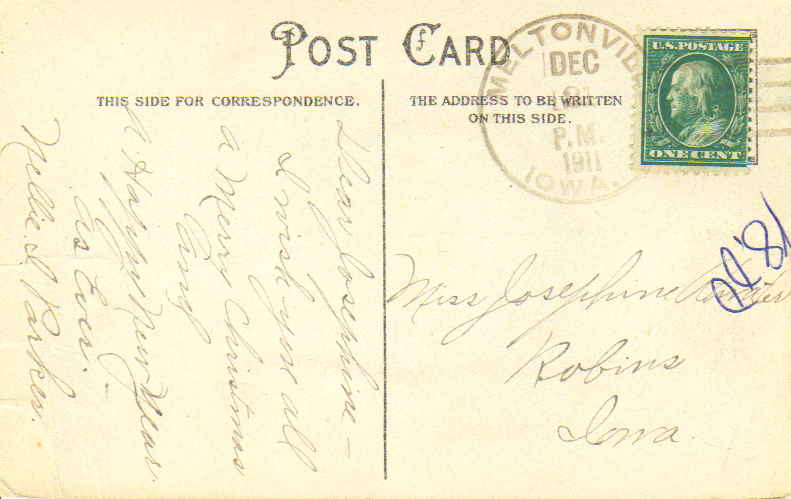 POST CARD
THIS SIDE FOR CORRESPONDENCE.
THE ADDRESS TO BE WRITTEN
ON THIS SIDE.
MELTONVIL
DEC
P.M.
1911
IOWA.
U.S. POSTAGE
ONE CENT
Dear Josephine –
I wish you all
a Merry Christmas
and
A Happy New Year.
As Ever. –
Nellie. I Parker.
Miss Josephine
Robins
Iowa.